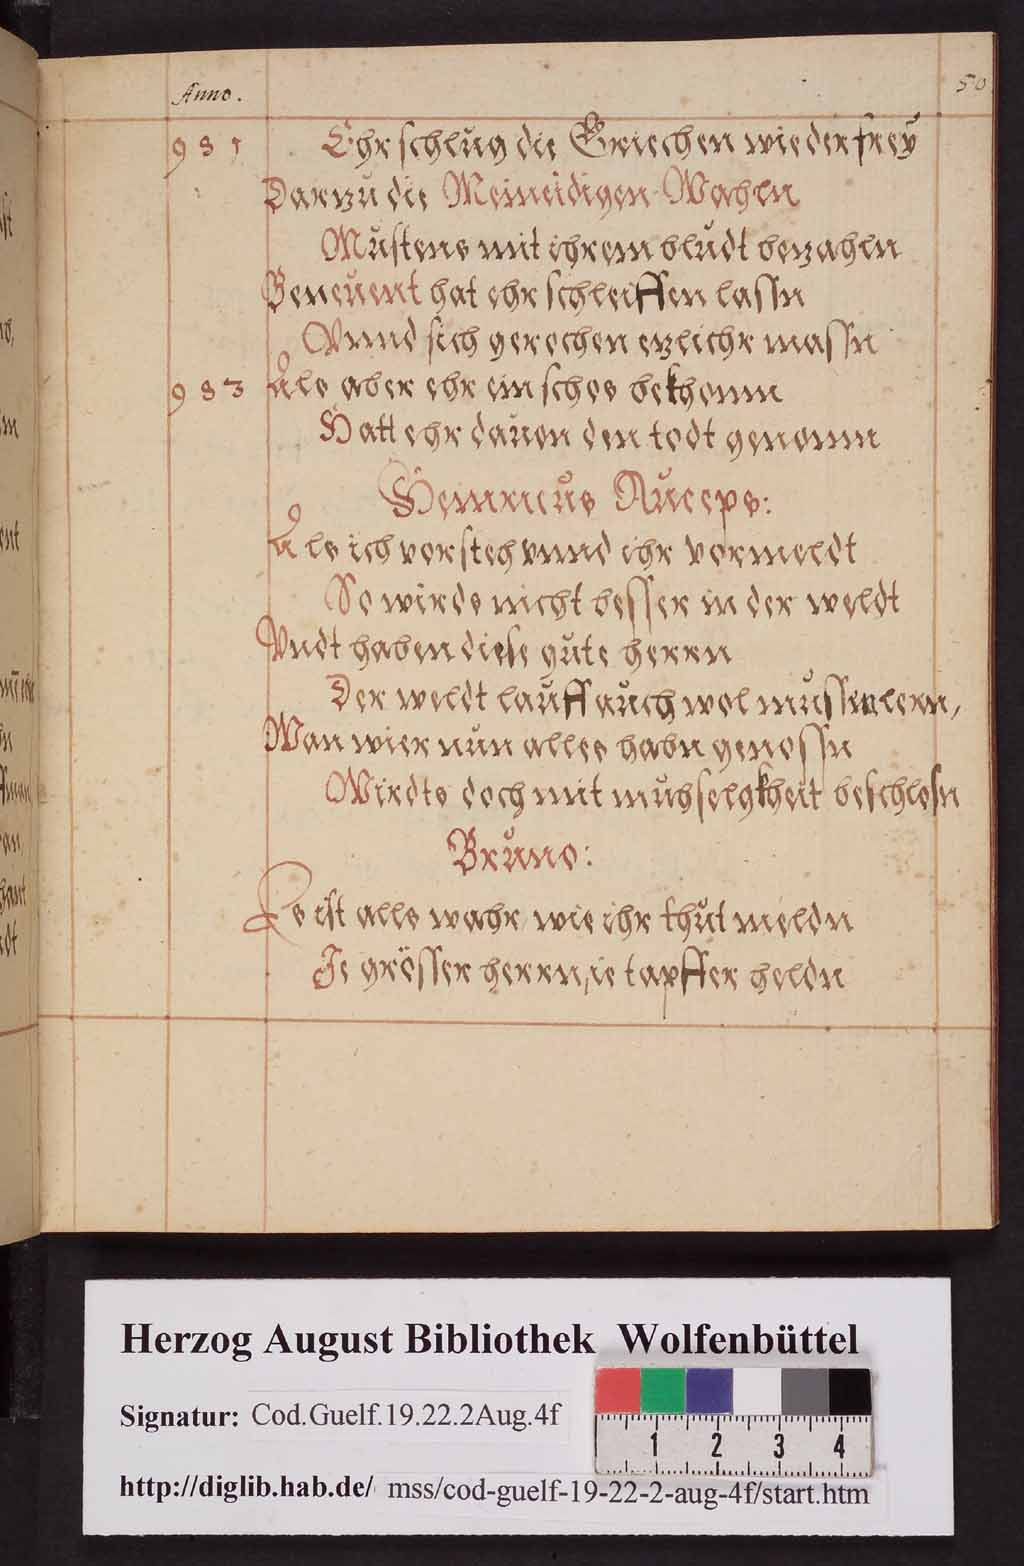 Anno.
50
981 Ehr schlug die Griechen wieder frey
Darzu die Meineidigen Wahln
Mustens mit ihrem bludt bezahln
Beneuent hat ehr schleiffen lassn
Vnnd sich gerochen ezlichr massn
983 Als aber ehr ein schos bekhomn
Hatt ehr dauon den todt genomn
Heinricus Auceps:
Als ich versteh vnnd ihr vormeldt
So wirds nicht besser in der weldt
Vndt haben diese gute herrn
Der weldt lauff auch wol mussen lern,
Wan wier nun alles habn genossn
Wirdts doch mit muhselgkheit beschlosn
Bruno:
Es ist alls wahr wie ihr thut meldn
Je grösser herrn, ie tapffer heldn
Herzog August Bibliothek Wolfenbüttel
Signatur: Cod.Guelf.19.22.2Aug.4f
1 2 3 4
http://diglib.hab.de/ mss/cod-guelf-19-22-2-aug-4f/start.htm